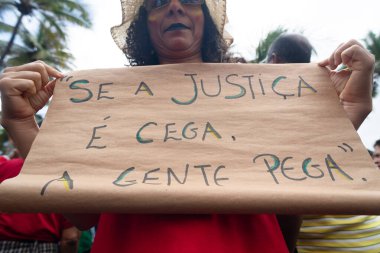 "SE A JUSTIÇA
É CEGA,
A GENTE PEGA".